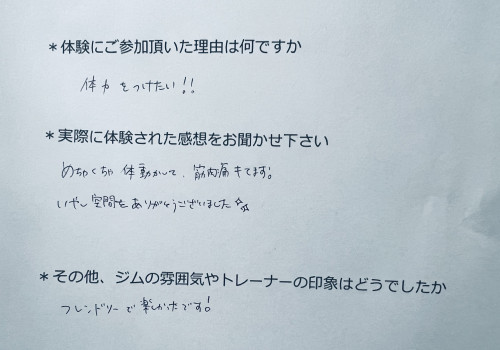 ＊体験にご参加頂いた理由は何ですか
体力をつけたい!!
＊実際に体験された感想をお聞かせ下さい
めちゃくちゃ体動かして、筋肉痛キてます。
いやし空間をありがとうございました☆
＊その他、ジムの雰囲気やトレーナーの印象はどうでしたか
フレンドリーで楽しかったです!